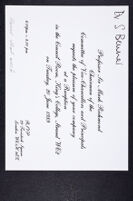 Dr S Brenner
Professor Sir Mark Richmond
Chairman of the
Committee of Vice-Chancellors and Principals
requests the pleasure of your company
at a Reception
in the Council Room, King's College, Strand WC2
on Tuesday, 20 June 1989
6.00pm - 8.00pm
R.S.V.P.
29 Tavistock Square
London WC1H 9EZ